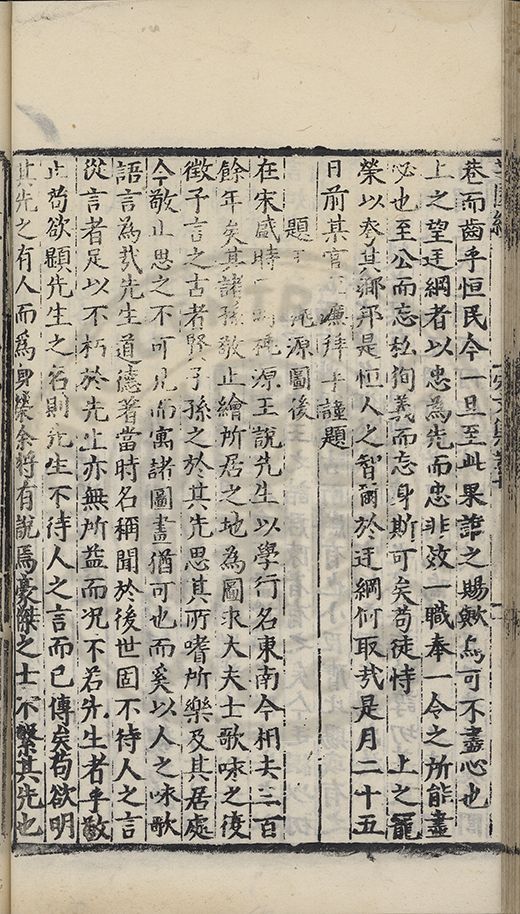 巷而齒乎恒民今一旦至此果誰之賜歟烏可不盡心也
上之望廷綱者以忠為先而忠非效一職奉一令之所能盡
必也至公而忘私狥義而忘身斯可矣苟徒恃 上之寵
榮以夸其鄉邦是恒人之智爾於廷綱何取哉是月二十五
日前某官 濂拜手謹題
題 源圖後
在宋盛時 源王說先生以學行名東南今相去三百
餘年矣其諸孫敬止繪所居之地為圖求大夫士歌咏之復
徵予言之古者賢子孫之於其先思其所嗜所樂及其居處
今敬止思之不可見而寓諸圖畫猶可也而奚以人之咏歌
語言為哉先生道德著當時名稱聞於後世固不待人之言
從言者足以不朽於先生亦無所益而况不若先生者乎敬
止苟欲顯先生之名則先生不待人之言而已傳矣苟欲明
其先之有人而為身榮余將有說焉豪傑之士不繫其先也